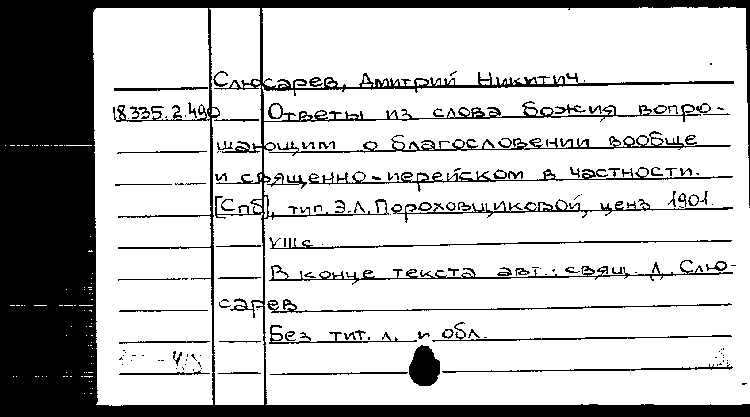 Слюсарев, Дмитрий Никитич.
18.335.2.490 Ответы из слова божия вопро-
шающим о благословении вообще
и священно-иерейском в частности.
[Спб], тип. Э.Л. Пороховщиковой, ценз 1901.
VIII с.
В конце текста авт.: свящ. Д. Слю-
сарев
Без тит. л. и обл.